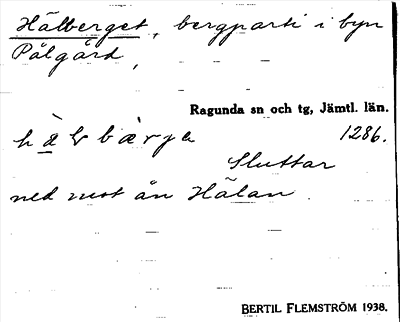 Hälberget, bergparti i byn
Pålgård,
Ragunda sn och tg, Jämtl. län.
hà̲lbὰrje 1286.
Sluttar
ned mot ån Hälan.
BERTIL FLEMSTRÖM 1938.